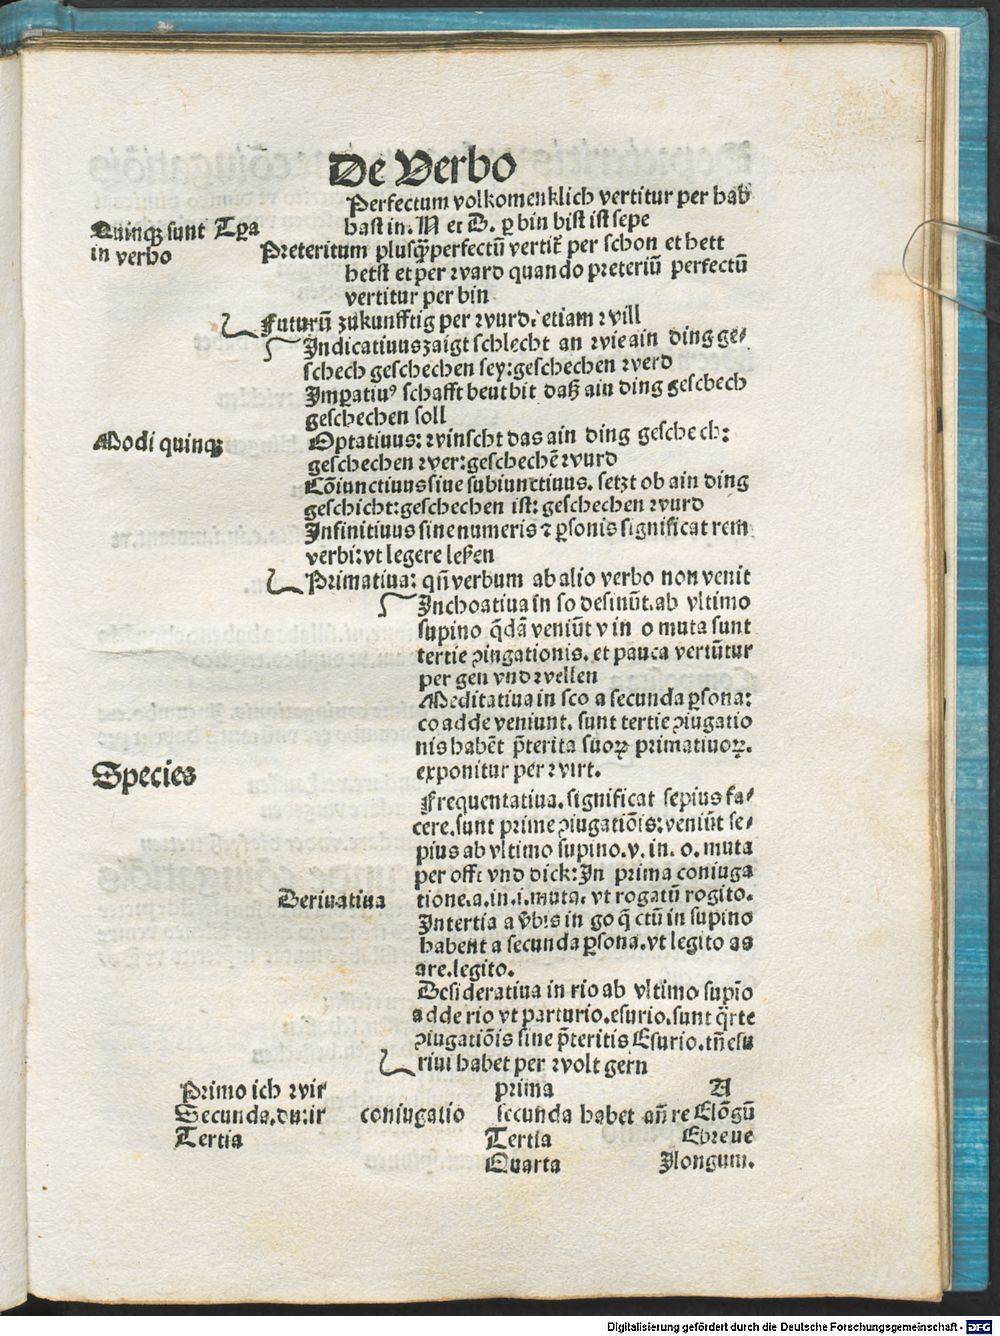 De Verbo
Perfectum volkomenklich vertitur per hab
hast in. N et D. ꝑ bin bist ist sepe
Quinqꝫ sunt Tꝑa
in verbo
Preteritum plusq̄perfectū vertit᷑ per schon et hett
hetst et per ward quando preteriū perfectū
vertitur per bin
Futurū zukunfftig per wurd. etiam will
Indicatiuus zaigt schlecht an wie ain ding ge⸗
schech geschechen sey: geschechen werd
Imꝑatiuꝰ schafft beut bit daß ain ding geschech
geschechen soll
Modi quinqꝫ
Optatiuus: winscht das ain ding geschech:
geschechen wer: geschechē wurd
Cōiunctiuus siue subiunctiuus. setzt ob ain ding
geschicht: geschechen ist: geschechen wurd
Infinitiuus sine numeris ⁊ ꝑsonis significat rem
verbi: vt legere leßen
Primatiua: qn̄ verbum ab alio verbo non venit
Inchoatiua in so desinūt. ab vltimo
supino q̄dā veniūt v in o muta sunt
tertie ꝯingationis. et pauca vertūtur
per gen vnd wellen
Meditatiua in sco a secunda ꝑsona:
co adde veniunt. sunt tertie ꝯiugatio
nis habēt p̄terita suoꝝ primatiuoꝝ.
exponitur per wirt.
Species
Frequentatiua. significat sepius fa⸗
cere. sunt prime ꝯiugatiōis: veniūt se⸗
pius ab vltimo supino. v. in. o. muta
per offt vnd dick: In prima coniuga
Deriuatiua
tione. a. in. i. muta. vt rogatū rogito.
In tertia a v̄bis in go q̄ ctū in supino
habent a secunda ꝑsona. vt legito as
are. legito.
Desideratiua in rio ab vltimo supīo
adde rio vt parturio. esurio. sunt q̄rte
ꝯiugatiōis sine p̄teritis Esurio. tn̄ esu
riui habet per wolt gern
Primo ich wir prima A
Secunda. du: ir coniugatio secunda habet an̄ re Elōgū
Tertia Tertia Ebreue
Quarta Ilongum.
Digitalisierung gefördert durch die Deutsche Forschungsgemeinschaft - DFG